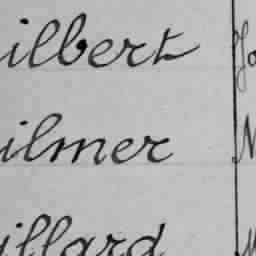 ilbert
ilmer
illard